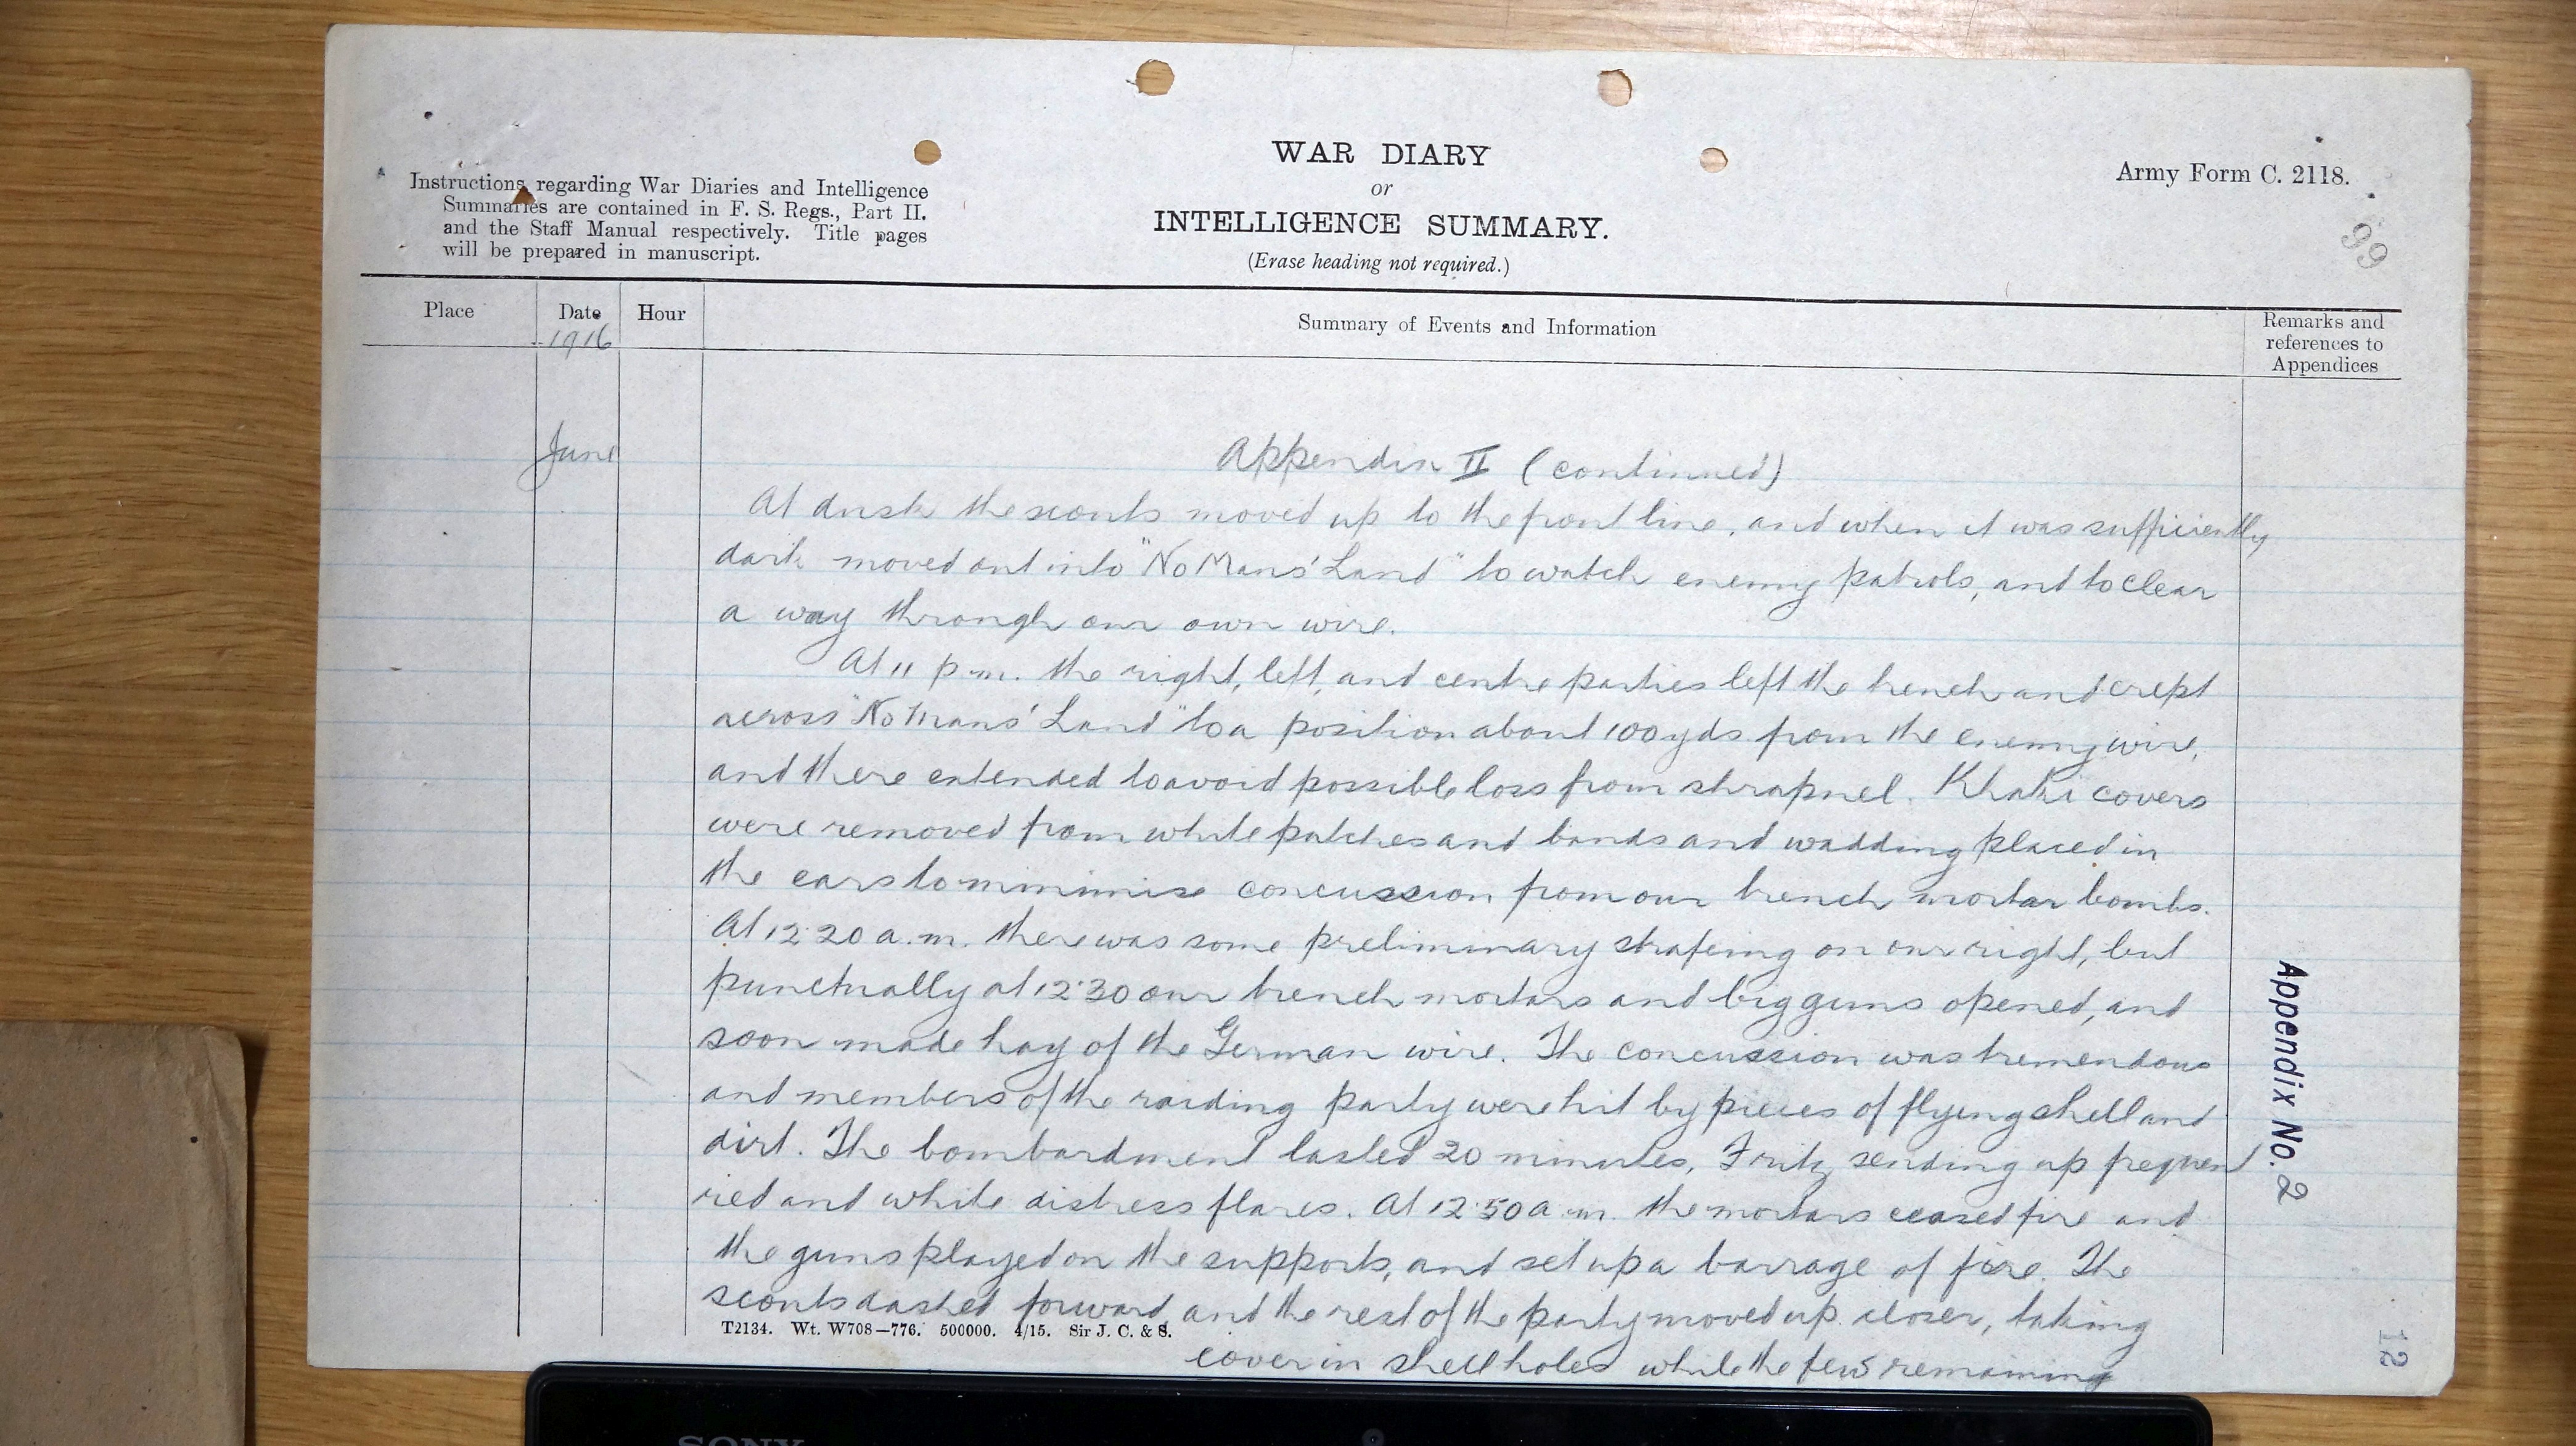 WAR DIARY
or
INTELLIGENCE SUMMARY.
(Erase heading not required.)
Instructions regarding War Diaries and Intelligence
Summaries are contained in F. S. Regs., Part II.
and the Staff Manual respectively. Title pages
will be prepared in manuscript.
Army Form C. 2118.
99
Place
Date
1916
Hour
Summary of Events and Information
Remarks and
references to
Appendices
June
Appendix II (continued)
At dusk the scouts moved up to the front line, and when it was sufficiently
dark moved out into "No Mans' Land" to watch enemy patrols, and to clear
a way through our own wire.
At 11 p.m. the right, left, and centre parties left the trench and crept
across "No Mans' Land" to a position about 100 yds from the enemy wire,
and there extended to avoid possible loss from shrapnel. Khaki covers
were removed from white patches and bands and wadding placed in
the ears to minimise concussion from our trench mortar bombs.
At 12.20 a.m. there was some preliminary strafeing on our right, but
punctually at 12.30 our trench mortars and big guns opened, and
soon made hay of the German wire. The concussion was tremendous
and members of the raiding party were hit by pieces of flying shell and
dirt. The bombardment lasted 20 minutes, Fritz sending up frequent
red and white distress flares. At 12.50 a.m. the mortars ceased fire and
the guns played on the supports, and set up a barrage of fire. The
scouts dashed forward and the rest of the party moved up closer, taking
cover in shell holes while the few remaining
T2134. Wt. W708—776. 500000. 4/15. Sir J. C. & S.
Appendix No. 2
12
SONY